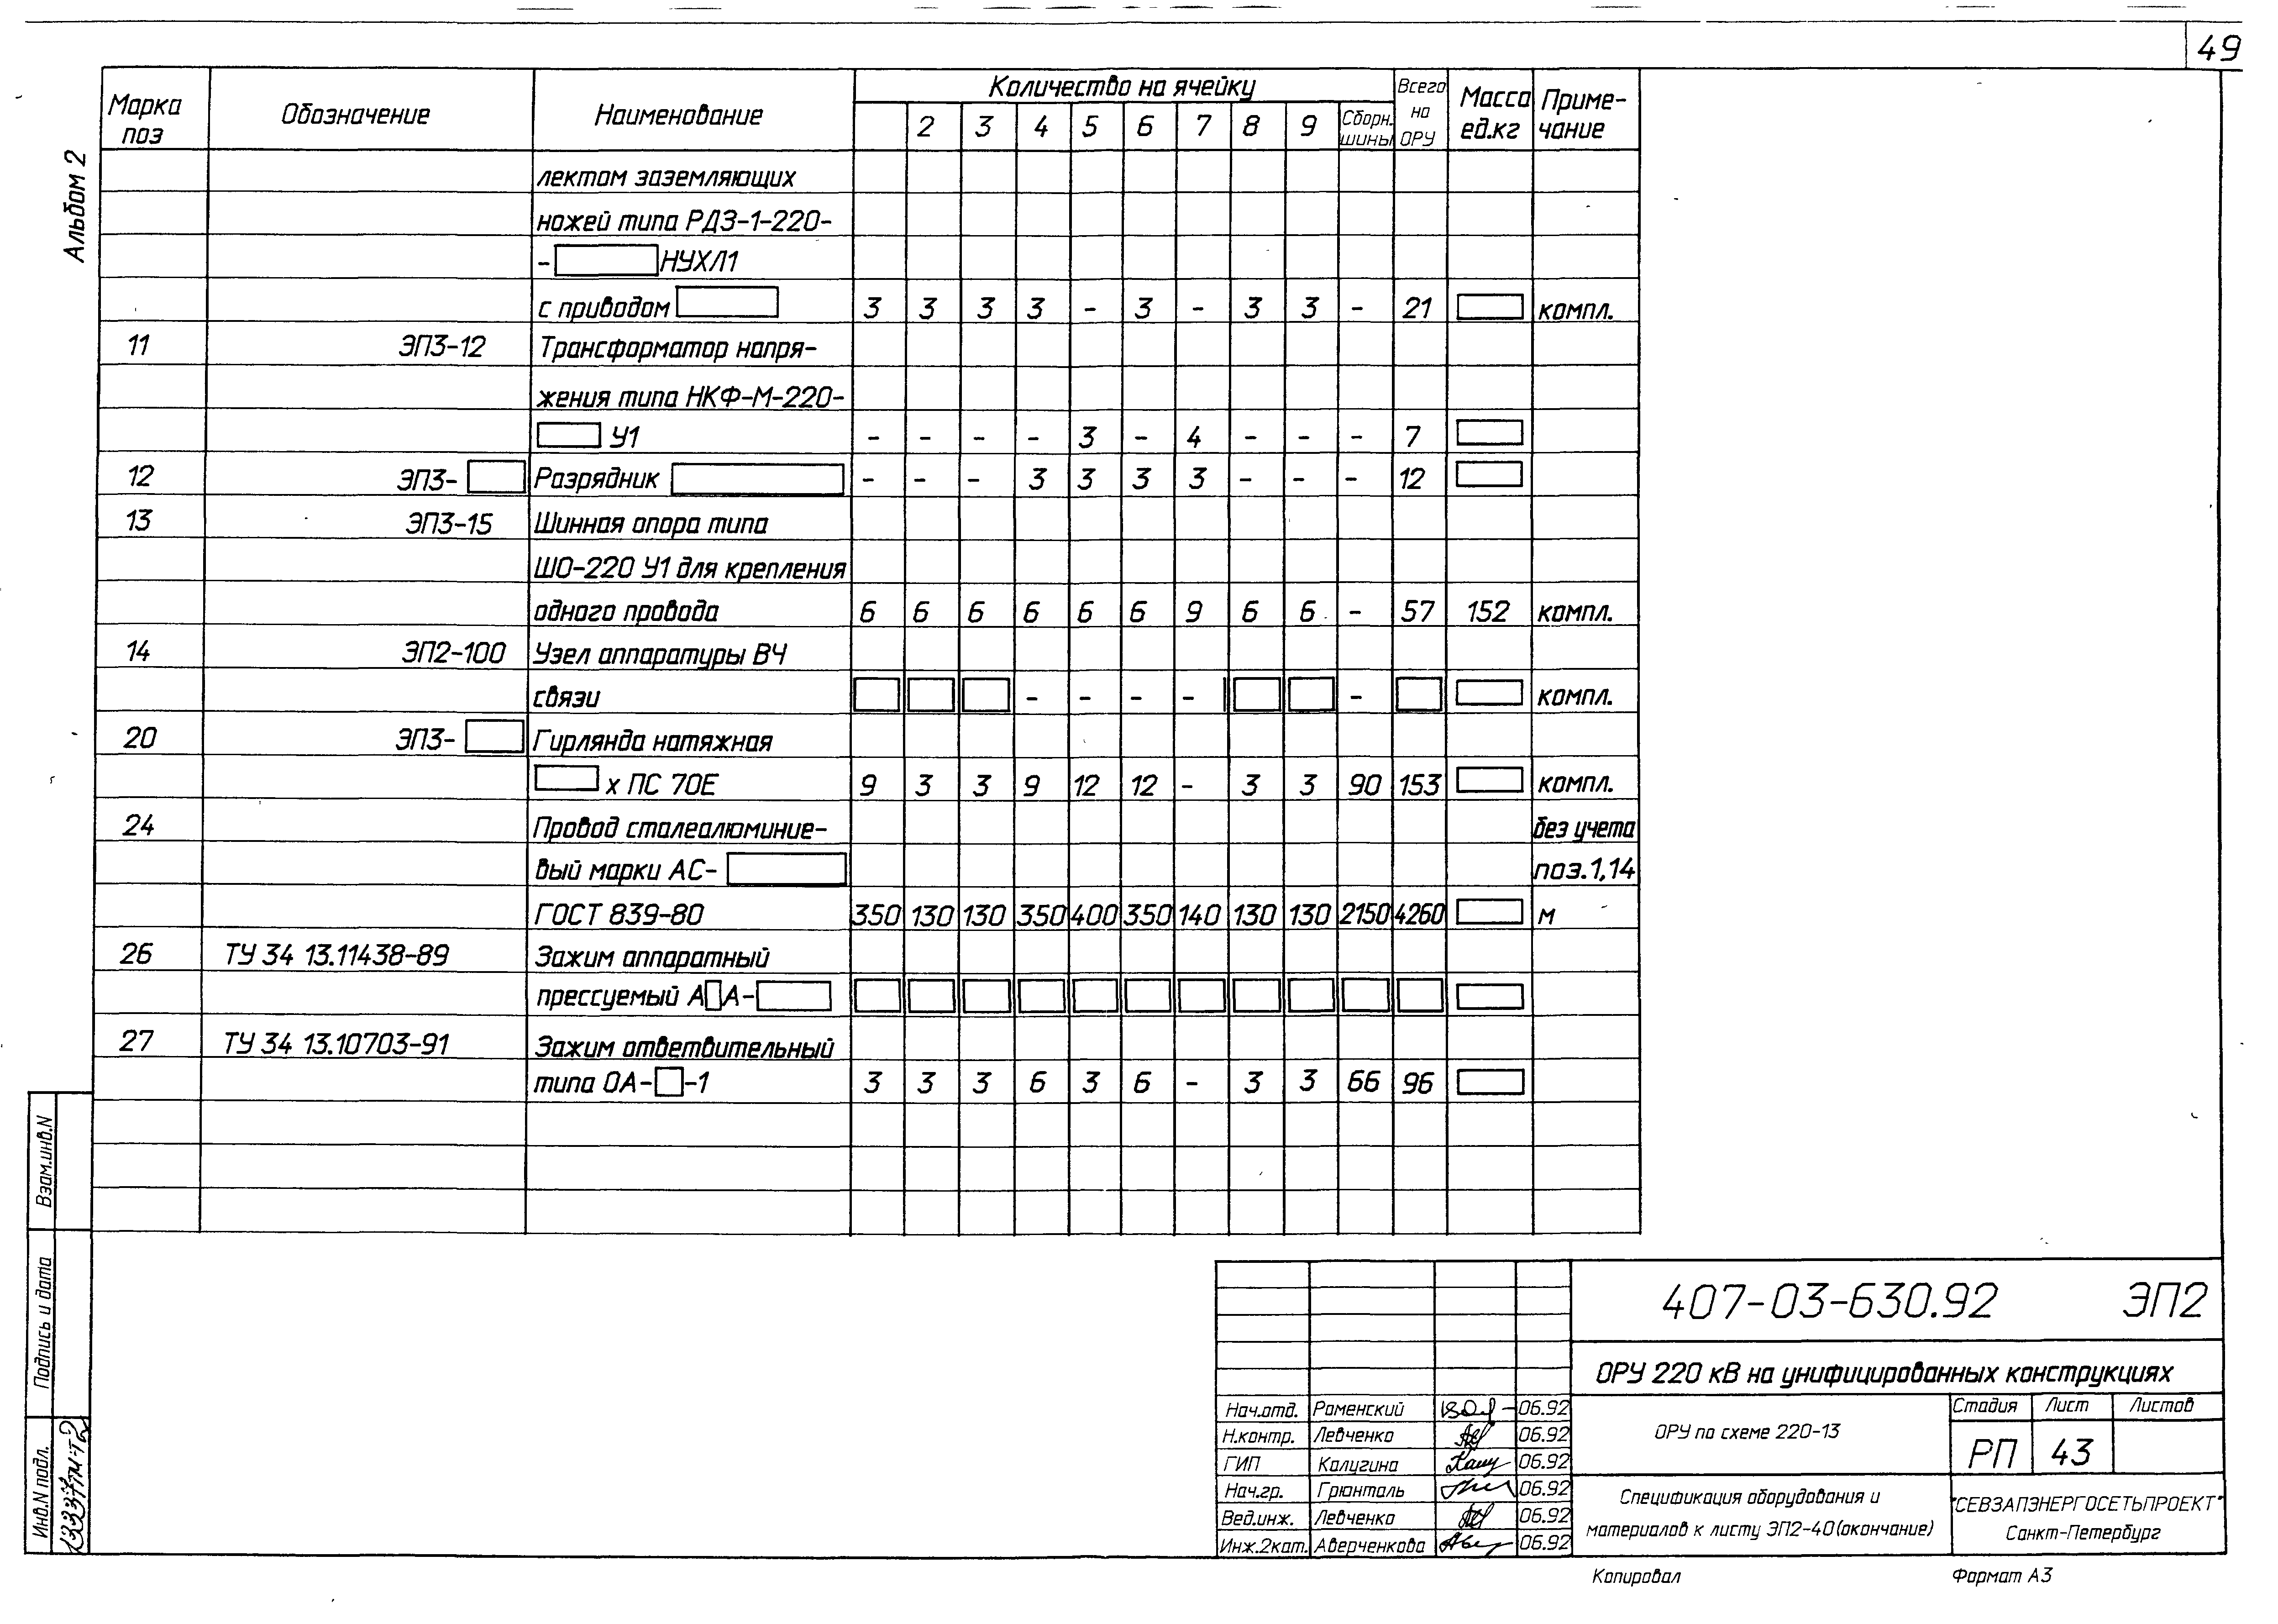 49
Альбом 2
Марка поз
Обозначение
Наименование
Количество на ячейку
2 3 4 5 6 7 8 9 Сборн. шины
Всего на ОРУ
Масса ед.кг
Приме-чание
лектом заземляющих
ножей типа РДЗ-1-220-
- НУХЛ1
с приводом 3 3 3 3 - 3 - 3 3 - 21 компл.
11 ЭП3-12 Трансформатор напря-
жения типа НКФ-М-220-
У1 - - - - 3 - 4 - - - 7
12 ЭП3- Разрядник - - - 3 3 3 3 - - - 12
13 ЭП3-15 Шинная опора типа
ШО-220 У1 для крепления
одного провода 6 6 6 6 6 6 9 6 6 - 57 152 компл.
14 ЭП2-100 Узел аппаратуры ВЧ
связи - - - - - компл.
20 ЭП3- Гирлянда натяжная
х ПС 70Е 9 3 3 9 12 12 - 3 3 90 153 компл.
24 Провод сталеалюминие- без учета
вый марки АС- поз.1,14
ГОСТ 839-80 350 130 130 350 400 350 140 130 130 2150 4260 м
26 ТУ 34 13.11438-89 Зажим аппаратный
прессуемый А А-
27 ТУ 34 13.10703-91 Зажим ответвительный
типа ОА- -1 3 3 3 6 3 6 - 3 3 66 96
Взам.инв.N
Подпись и дата
Инв.N подл.
407-03-630.92 ЭП2
ОРУ 220 кВ на унифицированных конструкциях
Нач.отд. Роменский 06.92
Н.контр. Левченко 06.92
ГИП Калугина 06.92
Нач.гр. Грюнталь 06.92
Вед.инж. Левченко 06.92
Инж.2кат. Аверченкова 06.92
ОРУ по схеме 220-13
Стадия Лист Листов
РП 43
Спецификация оборудования и
материалов к листу ЭП2-40(окончание)
"СЕВЗАПЭНЕРГОСЕТЬПРОЕКТ"
Санкт-Петербург
Копировал Формат А3